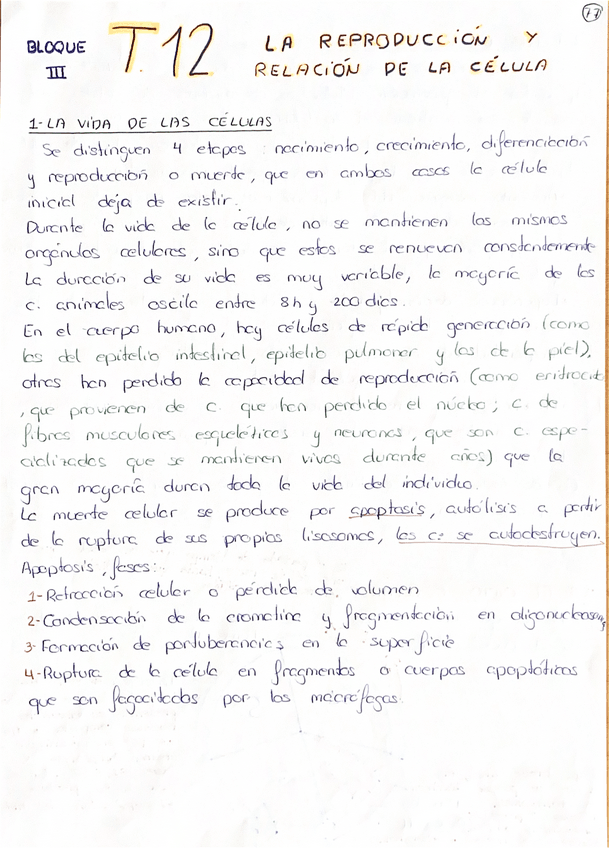 77
BLOQUE III T.12 LA REPRODUCCIÓN Y
RELACIÓN DE LA CÉLULA
1-LA VIDA DE LAS CÉLULAS
Se distinguen 4 etapas: nacimiento, crecimiento, diferenciación
y reproducción o muerte, que en ambos casos la célula
inicial deja de existir.
Durante la vida de la célula, no se mantienen los mismos
orgánulos celulares, sino que estos se renuevan constantemente
La duración de su vida es muy variable, la mayoría de las
c. animales oscila entre 8h y 200 días.
En el cuerpo humano, hay células de rápida generación (como
las del epitelio intestinal, epitelio pulmonar y las de la piel),
otras han perdido la capacidad de reproducción (como eritrocit
, que provienen de c. que han perdido el núcleo; c. de
fibras musculares esqueléticas y neuronas, que son c. espe-
cializadas que se mantienen vivas durante años) que la
gran mayoría duran toda la vida del individuo.
La muerte celular se produce por apoptosis, autólisis a partir
de la ruptura de sus propios lisosomas, las c. se autodestruyen.
Apoptosis, fases:
1-Retracción celular o pérdida de volumen
2-Condensación de la cromatina y fragmentación en oligonucleosomas
3-Formación de portuberancias en la superficie
4-Ruptura de la célula en fragmentos o cuerpos apoptóticos
que son fagocitados por los macrófagos.